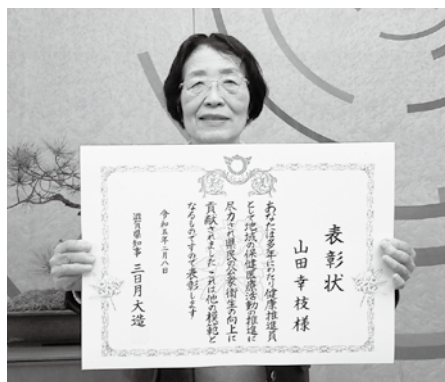 表彰状
山田幸枝様
あなたは多年にわたり健康推進員
として地域の保健医療活動の推進に
尽力され県民の公衆衛生の向上に
貢献されましたこれは他の模範と
なるものですので表彰します
令和五年二月八日
滋賀県知事 三日月大造